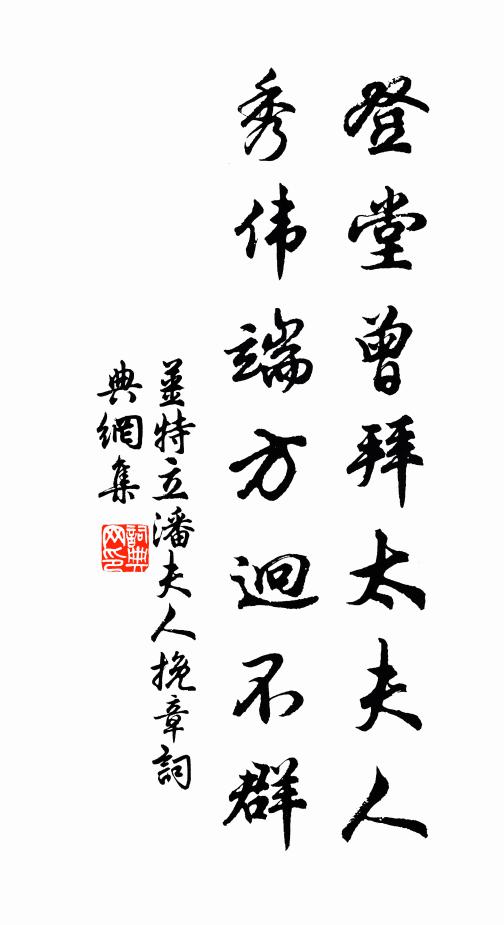 登堂曾拜太夫人
秀伟端方迥不群
薑特立潘夫人挽章詞
典網集
詞典网印